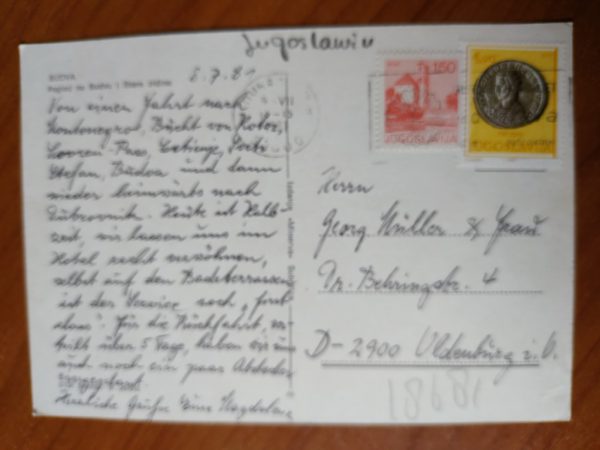 Jugoslawien
BUDVA
5.7.8
1,50
JUGOSLAVIJA
Von einer Fahrt nach
Montenegro, Bucht von Kotor,
Lovcen-Pass, Cetinje, Sveti
Stefan, Budva und dann
wieder heimwärts nach
Dubrovnik. Heute ist Halb
zeit, wir lassen uns im
Hotel recht verwöhnen,
selbst auf den Badeterrassen
ist der Service noch „first
class". Für die Rückfahrt, ver
teilt über 5 Tage, haben wir uns
auch noch ein paar Abstecher
Herzliche Grüße Eure Magdalena
Herrn
Georg Müller & Frau
Dr. Behringstr. 4
D-2900 Oldenburg i. O.
18681